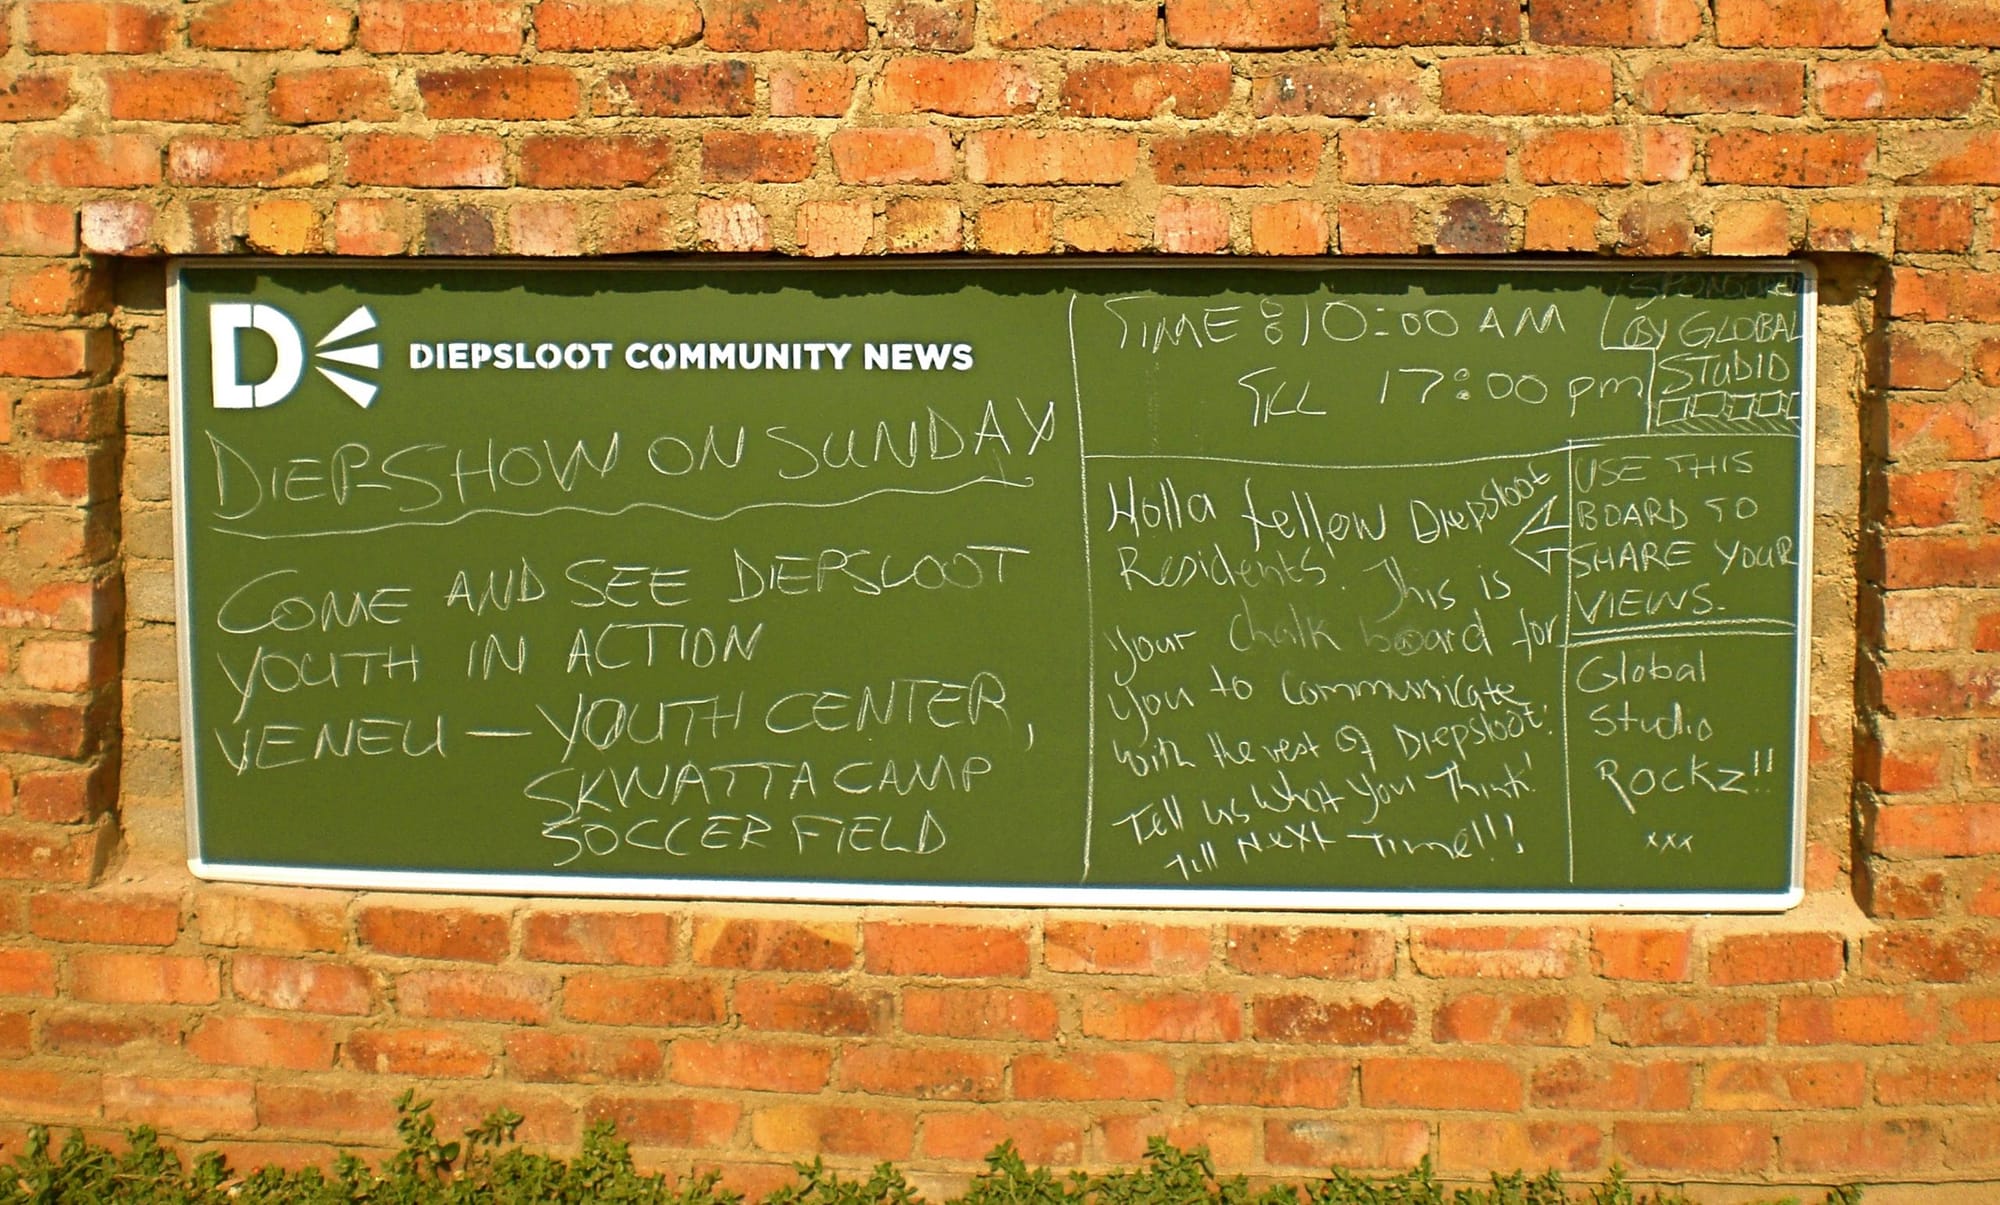 DIEPSLOOT COMMUNITY NEWS
DIEP-SHOW ON SUNDAY
COME AND SEE DIEPSLOOT
YOUTH IN ACTION
VENEU — YOUTH CENTER,
SKWATTA CAMP
SOCCER FIELD
TIME : 10:00 AM
TILL 17:00 pm
SPONSORED
BY GLOBAL
STUDIO
Holla fellow Diepsloot
Residents! This is
your chalk board for
you to communicate
with the rest of Diepsloot!
Tell us What You Think!
Till Next Time!!!
USE THIS
BOARD TO
SHARE YOUR
VIEWS.
Global
Studio
Rockz!!
xxx